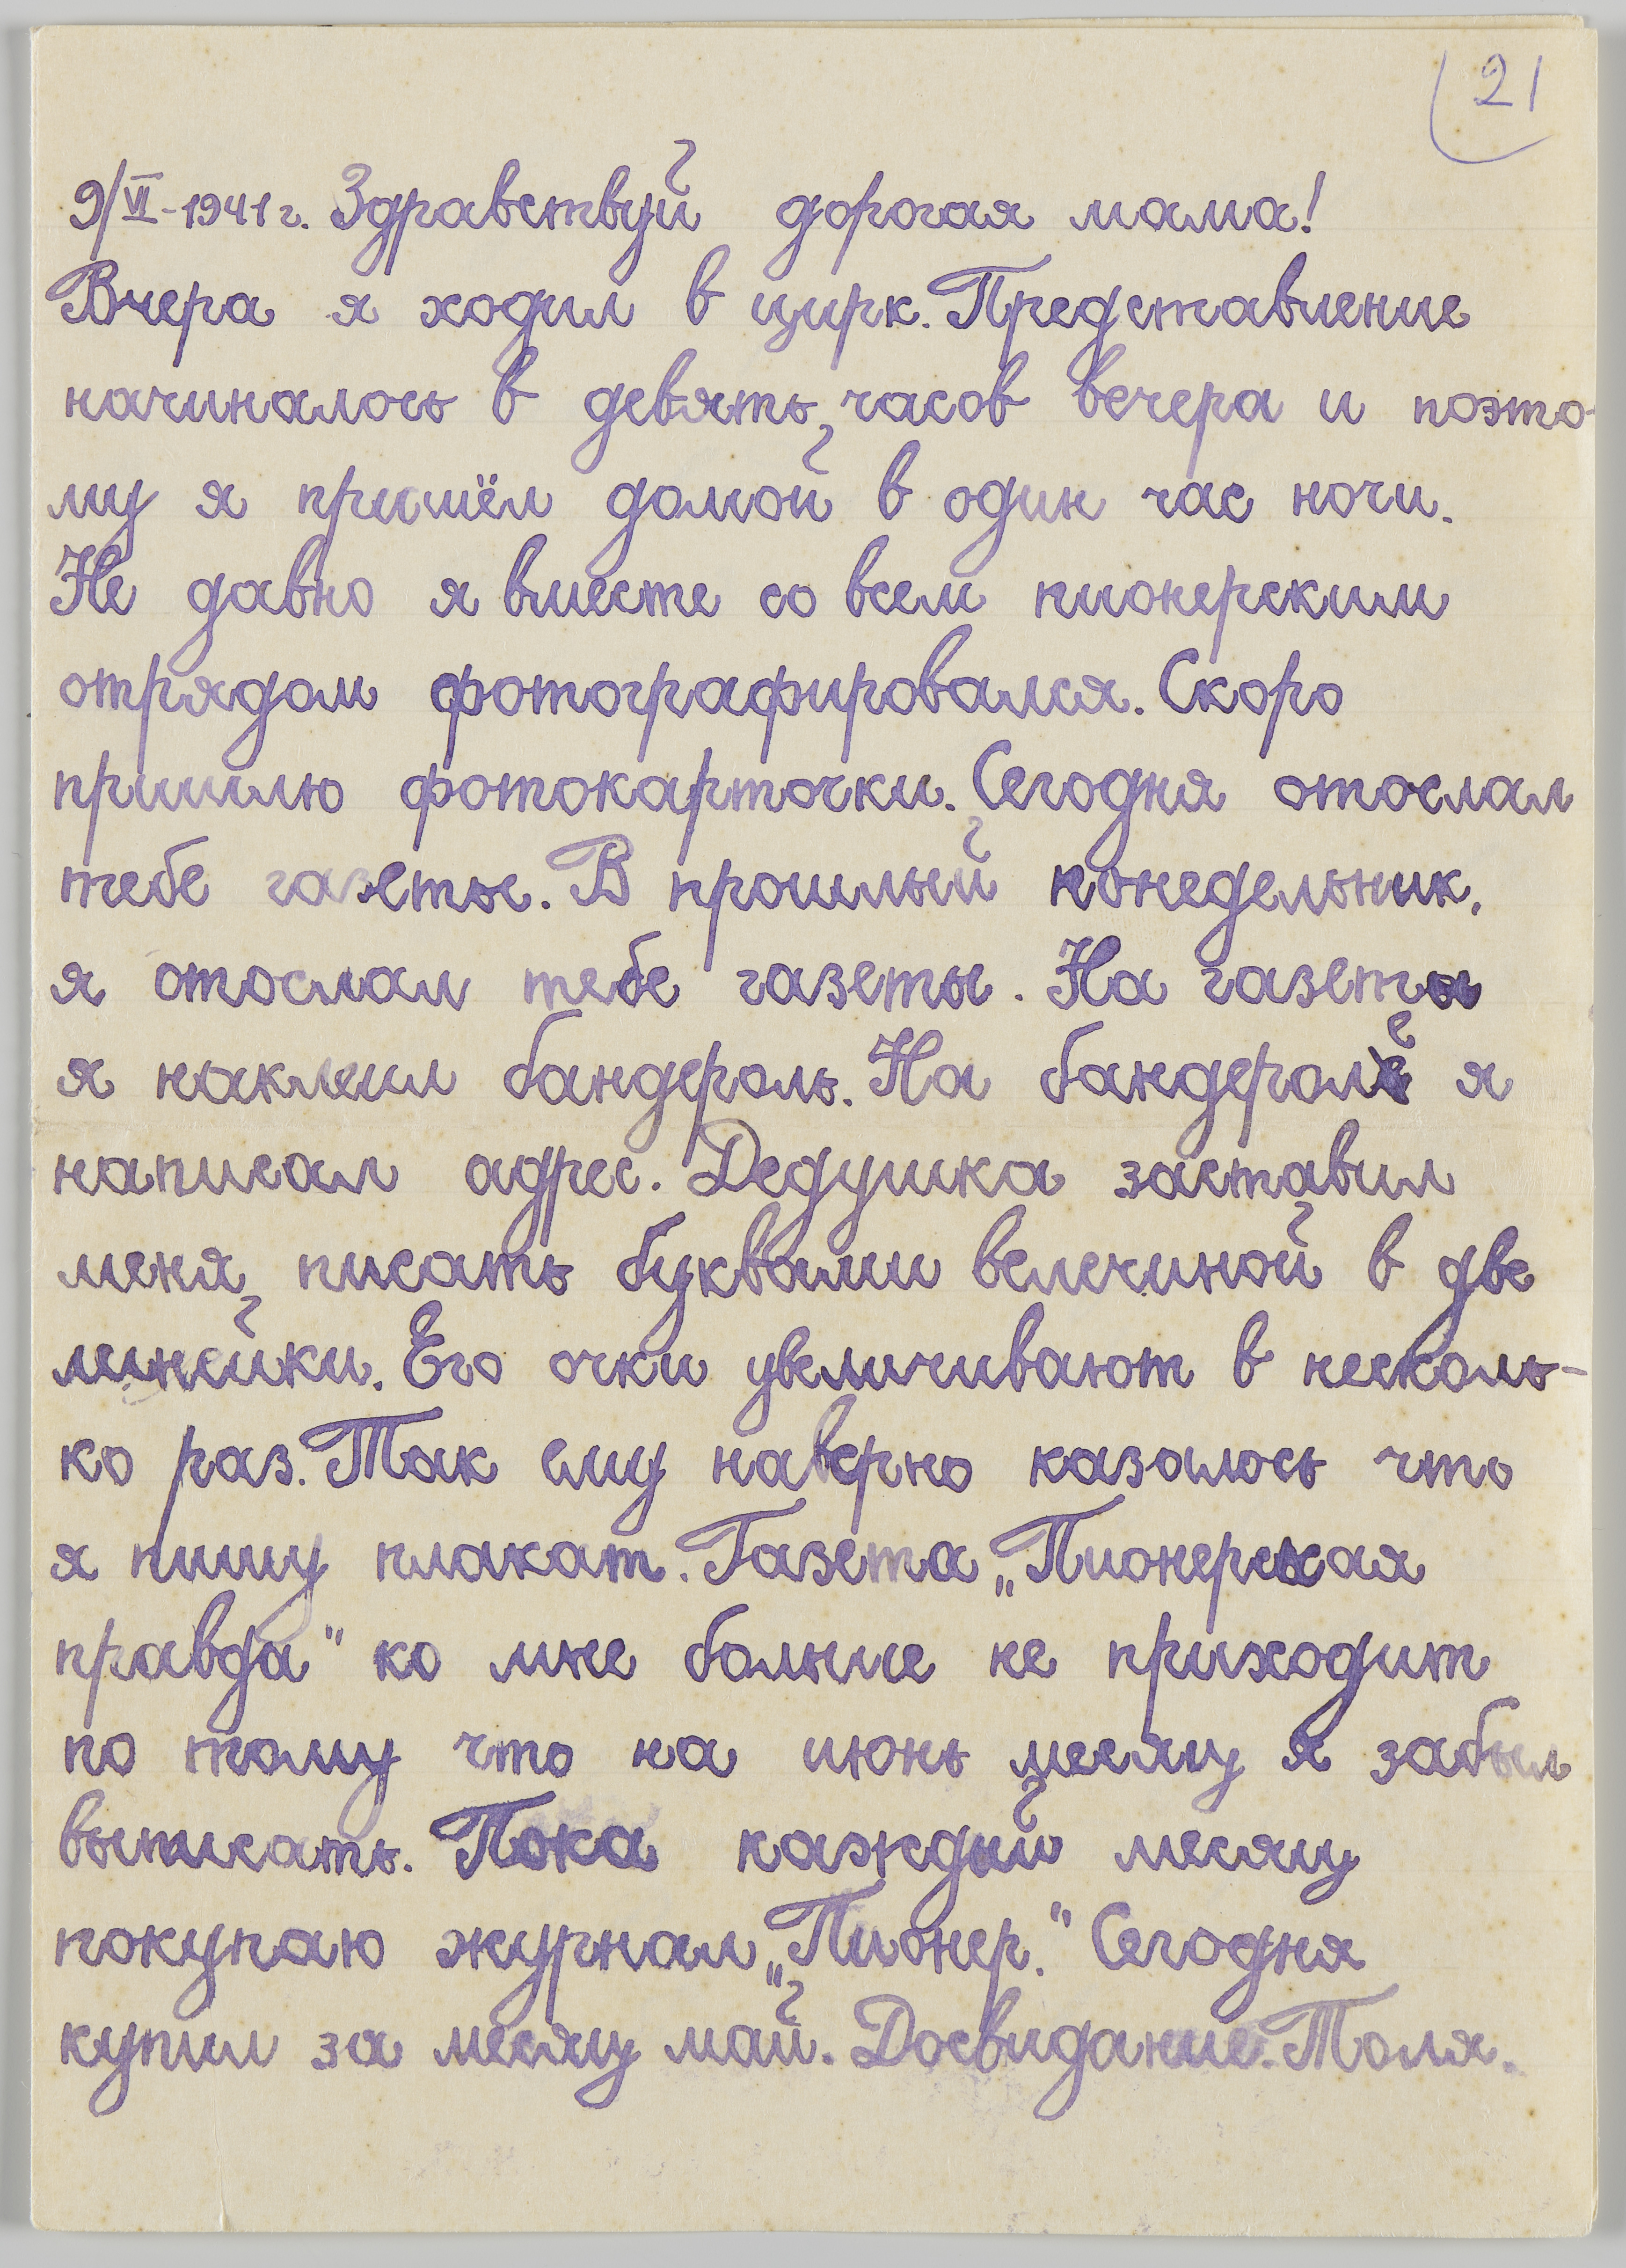 21
9/VI-1941 г. Здравствуй дорогая мама!
Вчера я ходил в цирк. Представление
начиналось в девять часов вечера и поэто-
му я пришёл домой в один час ночи.
Не давно я вместе со всем пионерским
отрядом фотографировался. Скоро
пришлю фотокарточки. Сегодня отослал
тебе газеты. В прошлый понедельник,
я отослал тебе газеты. На газеты
я наклеил бандероль. На бандероли я
написал адрес. Дедушка заставил
меня писать буквами велечиной в две
линейки. Его очки увеличивают в несколь-
ко раз. Так ему наверно казалось что
я пишу плакат. Газета „Пионерская
правда" ко мне больше не приходит
по тому что на июнь месяц я забыл
выписать. Пока каждый месяц
покупаю журнал „Пионер." Сегодня
купил за месяц май. Досвидание. Толя.